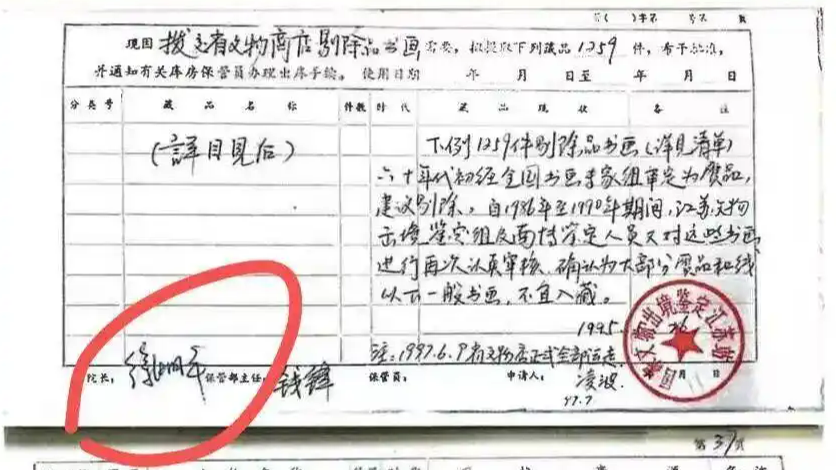 字第 号 第 页
现因 拨交省文物商店剔除品书画 需要,拟提取下列藏品 1259 件,希予批准,
并通知有关库房保管员办理出库手续。使用日期 年 月 日至 年 月 日
分类号 藏品名称 件数 时代 藏品现状 备注
(詳目見后)
下例1259件剔除品书画(详見清单)
六十年代初经全国书画专家组审定为贗品,
建议剔除,自1986年至1990年期间,江苏文物
出境鉴定组及南博鉴定人员又对这些书画
进行再次认真审核,确认为大部分贗品和线
以下一般书画,不宜入藏。
1995.
注:1997.6.9省文物店正式全部运走
院长: 徐湖平 保管部主任: 钱锋 保管员: 申请人: 凌波 月 日
97.7
文物出境鉴定江苏站
第37页